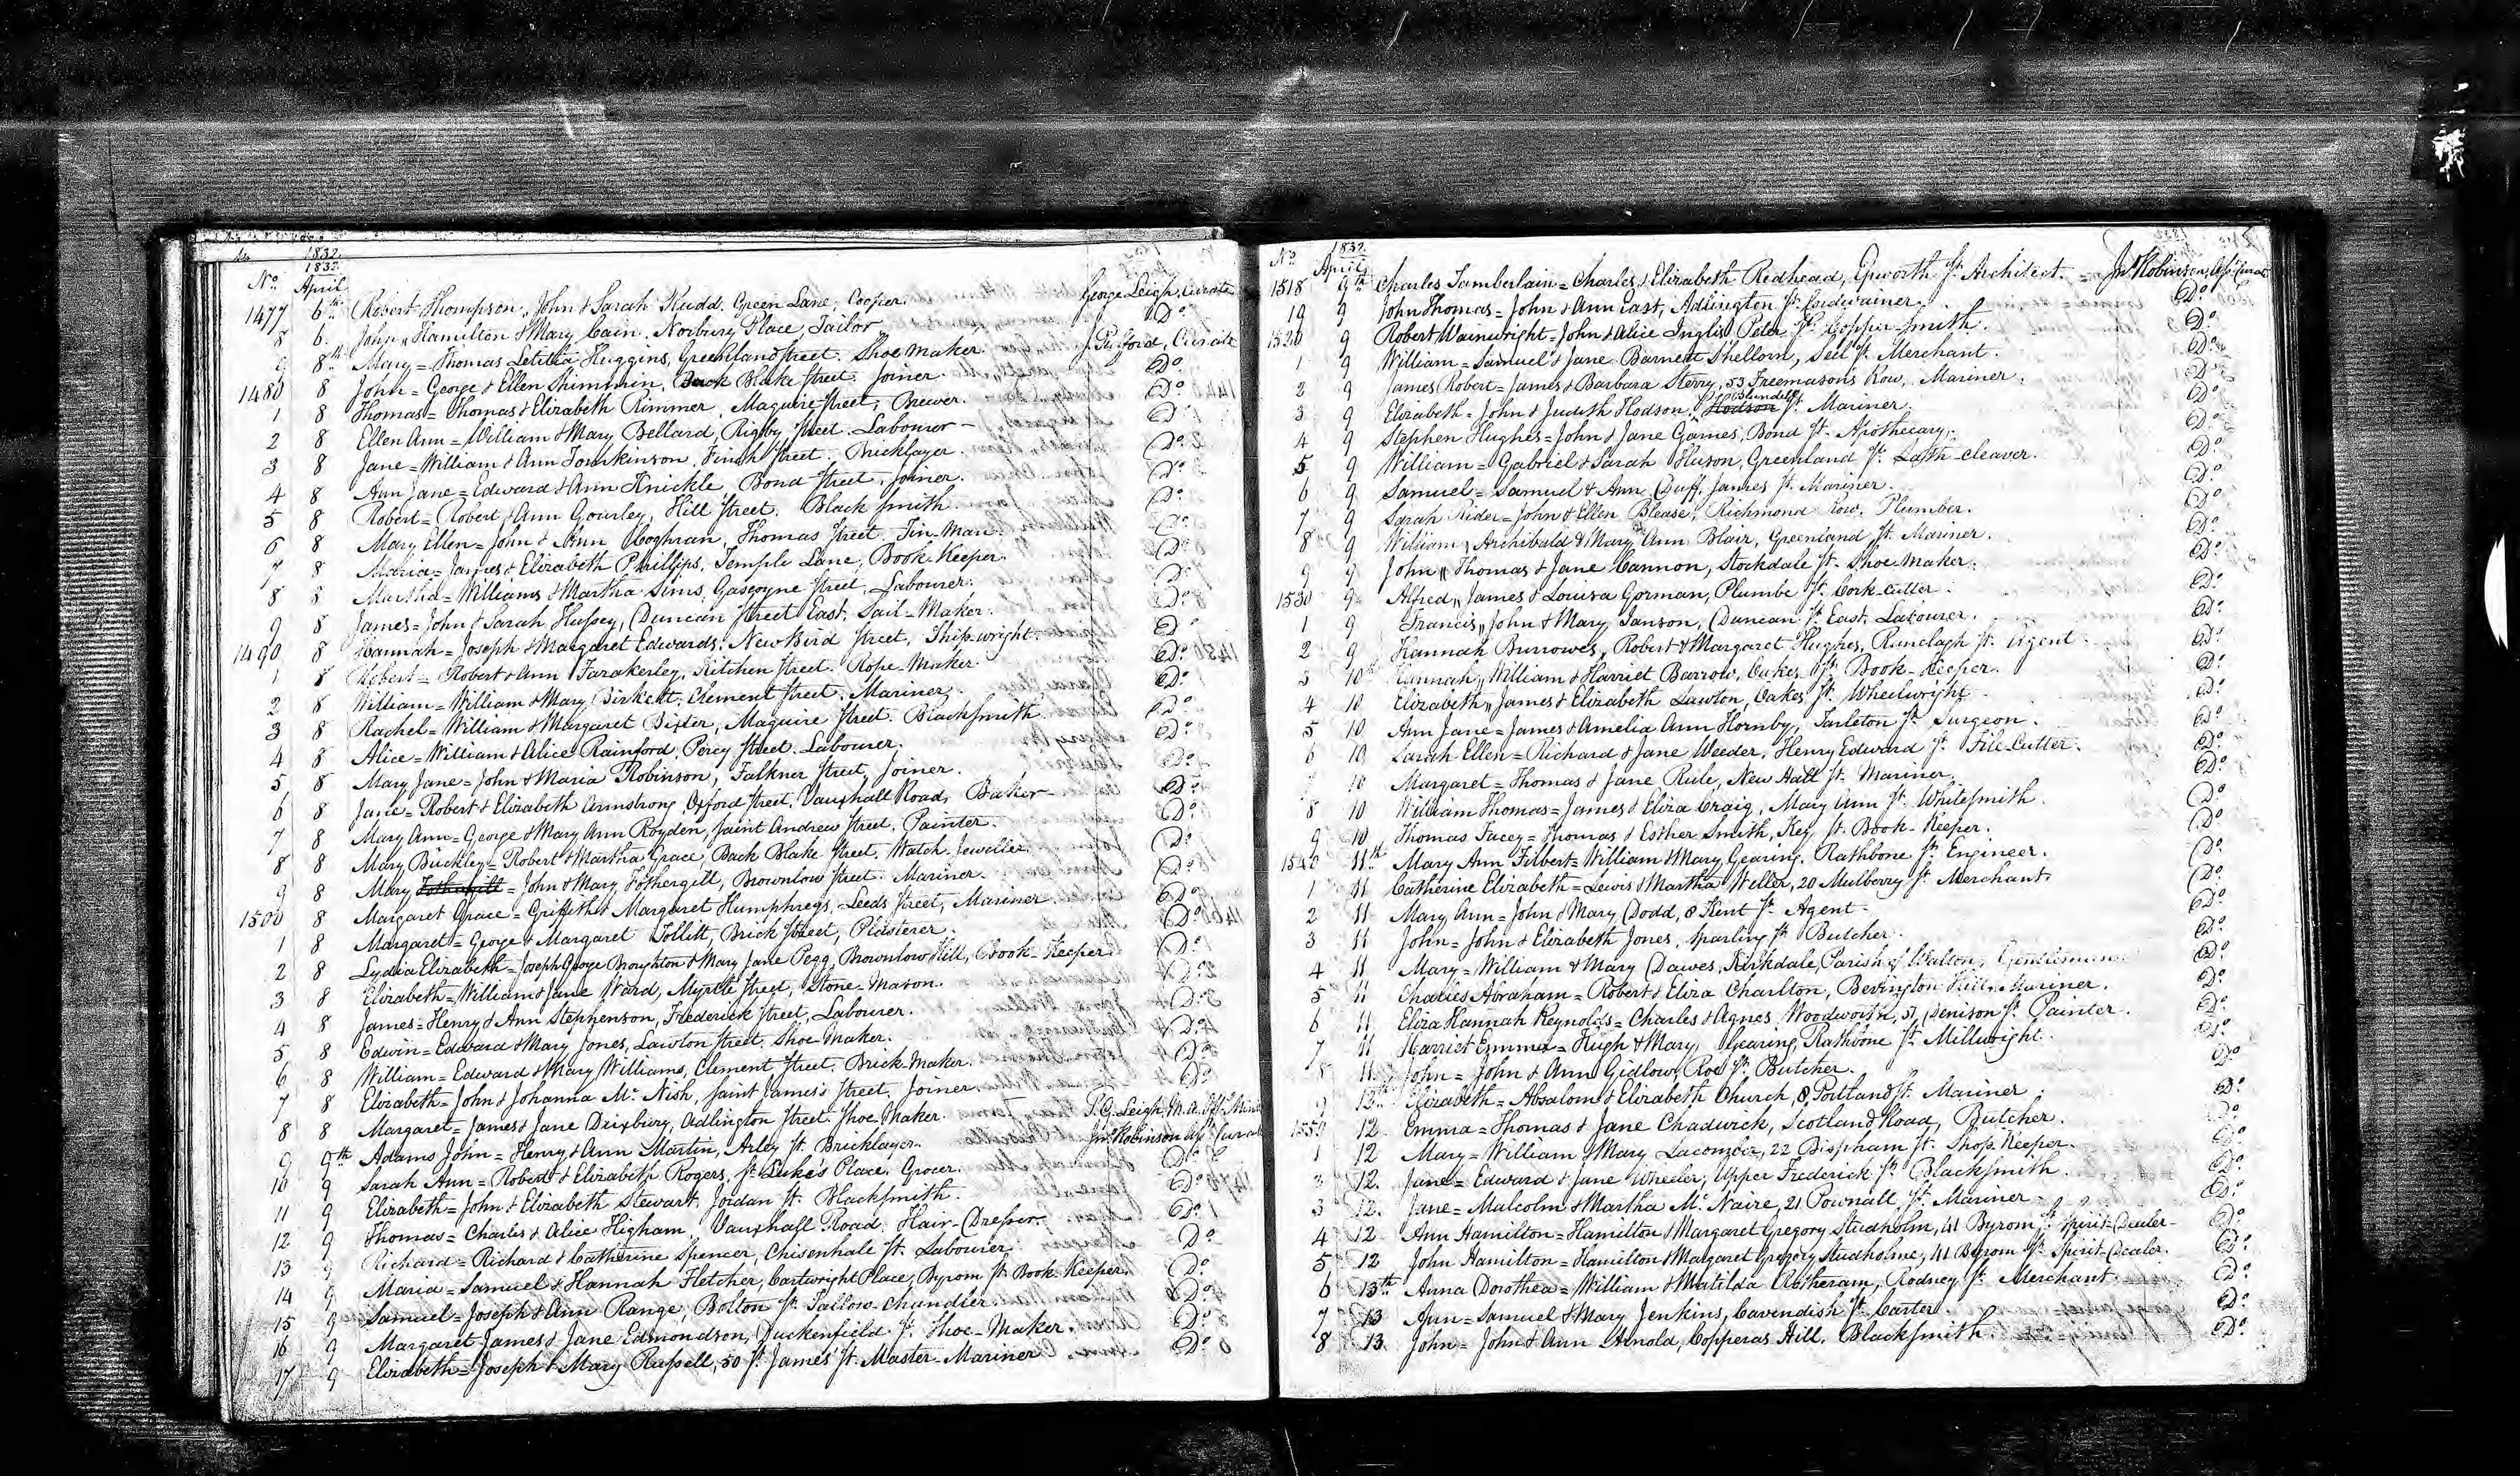 1832
1832
No. April
1477 6th Robert Thompson, John & Sarah Rudd. Green Lane, Cooper. George Leigh, Curate
8 6. John, Hamilton & Mary Cain. Norbury Place, Tailor. Do.
9 8th Mary = Thomas Letitia Huggins, Greenland Street. Shoe Maker. J. Pulford, Curate
1480 8 John = George & Ellen Shimmin, Back Blake Street. Joiner. Do.
1 8 Thomas = Thomas & Elizabeth Rimmer, Maguire Street, Brewer. Do.
2 8 Ellen Ann = William & Mary Bellard, Rigby Street. Labourer - Do.
3 8 Jane = William & Ann Tomkinson, Finch Street. Bricklayer. Do.
4 8 Ann Jane = Edward & Ann Knickle, Bond Street, Joiner. Do.
5 8 Robert = Robert Ann Gourley, Hill Street. Black Smith. Do.
6 8 Mary Ellen = John & Ann Coghran, Thomas Street. Tin-Man. Do.
7 8 Maria = James & Elizabeth Phillips, Temple Lane, Book-Keeper. Do.
8 8 Martha = Williams & Martha Sims, Gascoyne Street. Labourer. Do.
9 8 James = John & Sarah Hussey, Duncan Street East. Sail-Maker. Do.
1490 8 Hannah = Joseph & Margaret Edwards. New Bird Street, Ship-wright. Do.
1 8 Robert = Robert & Ann Farakerley, Kitchen Street. Rope-Maker. Do.
2 8 William = William & Mary Birkett. Clement Street. Mariner. Do.
3 8 Rachel = William & Margaret Bixter, Maguire Street. Blacksmith. Do.
4 8 Alice = William & Alice Rainford, Percy Street. Labourer. Do.
5 8 Mary Jane = John & Maria Robinson, Falkner Street, Joiner. Do.
6 8 Jane = Robert & Elizabeth Armstrong, Oxford Street, Vauxhall Road, Baker - Do.
7 8 Mary Ann = George & Mary Ann Royden, Saint Andrew Street. Painter. Do.
8 8 Mary Buckley = Robert & Martha Grace, Back Blake Street. Watch-Jeweller. Do.
9 8 Mary Fothergill = John & Mary Fothergill, Brownlow Street. Mariner. Do.
1500 8 Margaret Grace = Griffith & Margaret Humphreys, Leeds Street, Mariner. Do.
1 8 Margaret = George & Margaret Tollitt, Brick Street, Plasterer. Do.
2 8 Lydia Elizabeth = Joseph George Broughton & Mary Jane Pegg, Brownlow Hill, Book-Keeper. Do.
3 8 Elizabeth = William & Jane Ward, Myrtle Street, Stone-Mason. Do.
4 8 James = Henry & Ann Stephenson, Frederick Street, Labourer. Do.
5 8 Edwin = Edward & Mary Jones, Lawton Street. Shoe-Maker. Do.
6 8 William = Edward & Mary Williams, Clement Street. Brick-Maker. Do.
7 8 Elizabeth = John & Johanna Mc. Nish, Saint James's Street. Joiner. Do.
8 8 Margaret = James & Jane Drixbury, Adlington Street. Shoe-Maker. T.G. Leigh, M.A. Off. Minr.
9 9th Adams John = Henry & Ann Martin, Arley St. Bricklayer. Jno. Robinson Ass. Curate
10 9 Sarah Ann = Robert & Elizabeth Rogers, St. Luke's Place. Grocer. Do.
11 9 Elizabeth = John & Elizabeth Stewart. Jordan St. Blacksmith. Do.
12 9 Thomas = Charles & Alice Higham, Vauxhall Road. Hair-Dresser. Do.
13 9 Richard = Richard & Catherine Spencer, Chisenhale St. Labourer. Do.
14 9 Maria = Samuel & Hannah Fletcher, Cartwright Place, Byrom St. Book-Keeper. Do.
15 9 Samuel = Joseph & Ann Range, Bolton St. Tallow-Chandler. Do.
16 9 Margaret James & Jane Edmondson, Duckenfield St. Shoe-Maker. Do.
17 9 Elizabeth = Joseph & Mary Russell, 50 St. James' St. Master-Mariner Do.
1832
No. April
1518 9th Charles Tamberlain = Charles & Elizabeth Redhead, Epworth St. Architect. = Jno. Robinson, Ass. Curate
19 9 John Thomas = John & Ann East, Adlington St. Cordwainer. Do.
1520 9 Robert Wainwright = John & Alice Inglis, Peter St. Copper-Smith. Do.
1 9 William = Samuel & Jane Barnett Shellorn, Seel St. Merchant. Do.
2 9 James Robert = James & Barbara Sterry, 53 Freemason's Row, Mariner. Do.
3 9 Elizabeth = John & Judith Hodson. Hodson Blundell St. Mariner. Do.
4 9 Stephen Hughes = John & Jane Games, Bond St. Apothecary. Do.
5 9 William = Gabriel & Sarah Huson, Greenland St. Lath-cleaver. Do.
6 9 Samuel = Samuel & Ann Duff, James St. Mariner. Do.
7 9 Sarah Rider = John & Ellen Blease, Richmond Row. Plumber. Do.
8 9 William, Archibald & Mary Ann Blair, Greenland St. Mariner. Do.
9 9 John, Thomas & Jane Cannon, Stockdale St. Shoe-Maker. Do.
1530 9 Alfred, James & Louisa Gorman, Plumbe St. Cork-cutter. Do.
1 9 Francis, John & Mary Janson, Duncan St. East. Labourer. Do.
2 9 Hannah Burrowes, Robert & Margaret Hughes, Runclagh St. Agent. Do.
3 10th Hannah, William & Harriet Barrow, Oakes St. Book-Keeper. Do.
4 10 Elizabeth, James & Elizabeth Lawton, Oakes St. Wheelwright. Do.
5 10 Ann Jane = James & Amelia Ann Hornby, Tarleton St. Surgeon. Do.
6 10 Sarah Ellen = Richard & Jane Weeder, Henry Edward St. File-Cutter. Do.
7 10 Margaret = Thomas & Jane Rule, New Hall St. Mariner. Do.
8 10 William Thomas = James & Eliza Craig, Mary Ann St. Whitesmith. Do.
9 10 Thomas Facey = Thomas & Esther Smith, Key St. Book-Keeper. Do.
1540 11th Mary Ann Filbert = William & Mary Gearing. Rathbone St. Engineer. Do.
1 11 Catherine Elizabeth = Lewis & Martha Weller, 20 Mulberry St. Merchant. Do.
2 11 Mary Ann = John & Mary Dodd, 8 Kent St. Agent. Do.
3 11 John = John & Elizabeth Jones, Sparling St. Butcher. Do.
4 11 Mary = William & Mary Dawes, Kirkdale, Parish of Walton, Gentleman. Do.
5 11 Charles Abraham = Robert & Eliza Charlton, Bevington Hill. Mariner. Do.
6 11 Eliza Hannah Reynolds = Charles & Agnes Woodworth, 37, Denison St. Painter. Do.
7 11 Harriet Emmer = Hugh & Mary Gearing, Rathbone St. Millwright. Do.
8 11 John = John & Ann Gidlow, Roe St. Butcher. Do.
9 12th Elizabeth = Absalom & Elizabeth Church, 8 Portland St. Mariner. Do.
1550 12 Emma = Thomas & Jane Chadwick, Scotland Road, Butcher. Do.
1 12 Mary = William & Mary Lacomber, 22 Bispham St. Shop-Keeper. Do.
2 12. Jane = Edward & Jane Wheeler, Upper Frederick St. Blacksmith. Do.
3 12. Jane = Malcolm & Martha Mc. Naire, 21 Pownall St. Mariner Do.
4 12 Ann Hamilton = Hamilton & Margaret Gregory Studholm, 41 Byrom St. Spirit-Dealer - Do.
5 12 John Hamilton = Hamilton & Margaret Gregory Studholme, 41 Byrom St. Spirit-Dealer. Do.
6 13th Anna Dorothea = William & Matilda Rotheram, Rodney St. Merchant. Do.
7 13 Ann = Samuel & Mary Jenkins, Cavendish St. Carter. Do.
8 13 John = John & Ann Arnold, Copperas Hill. Blacksmith. Do.